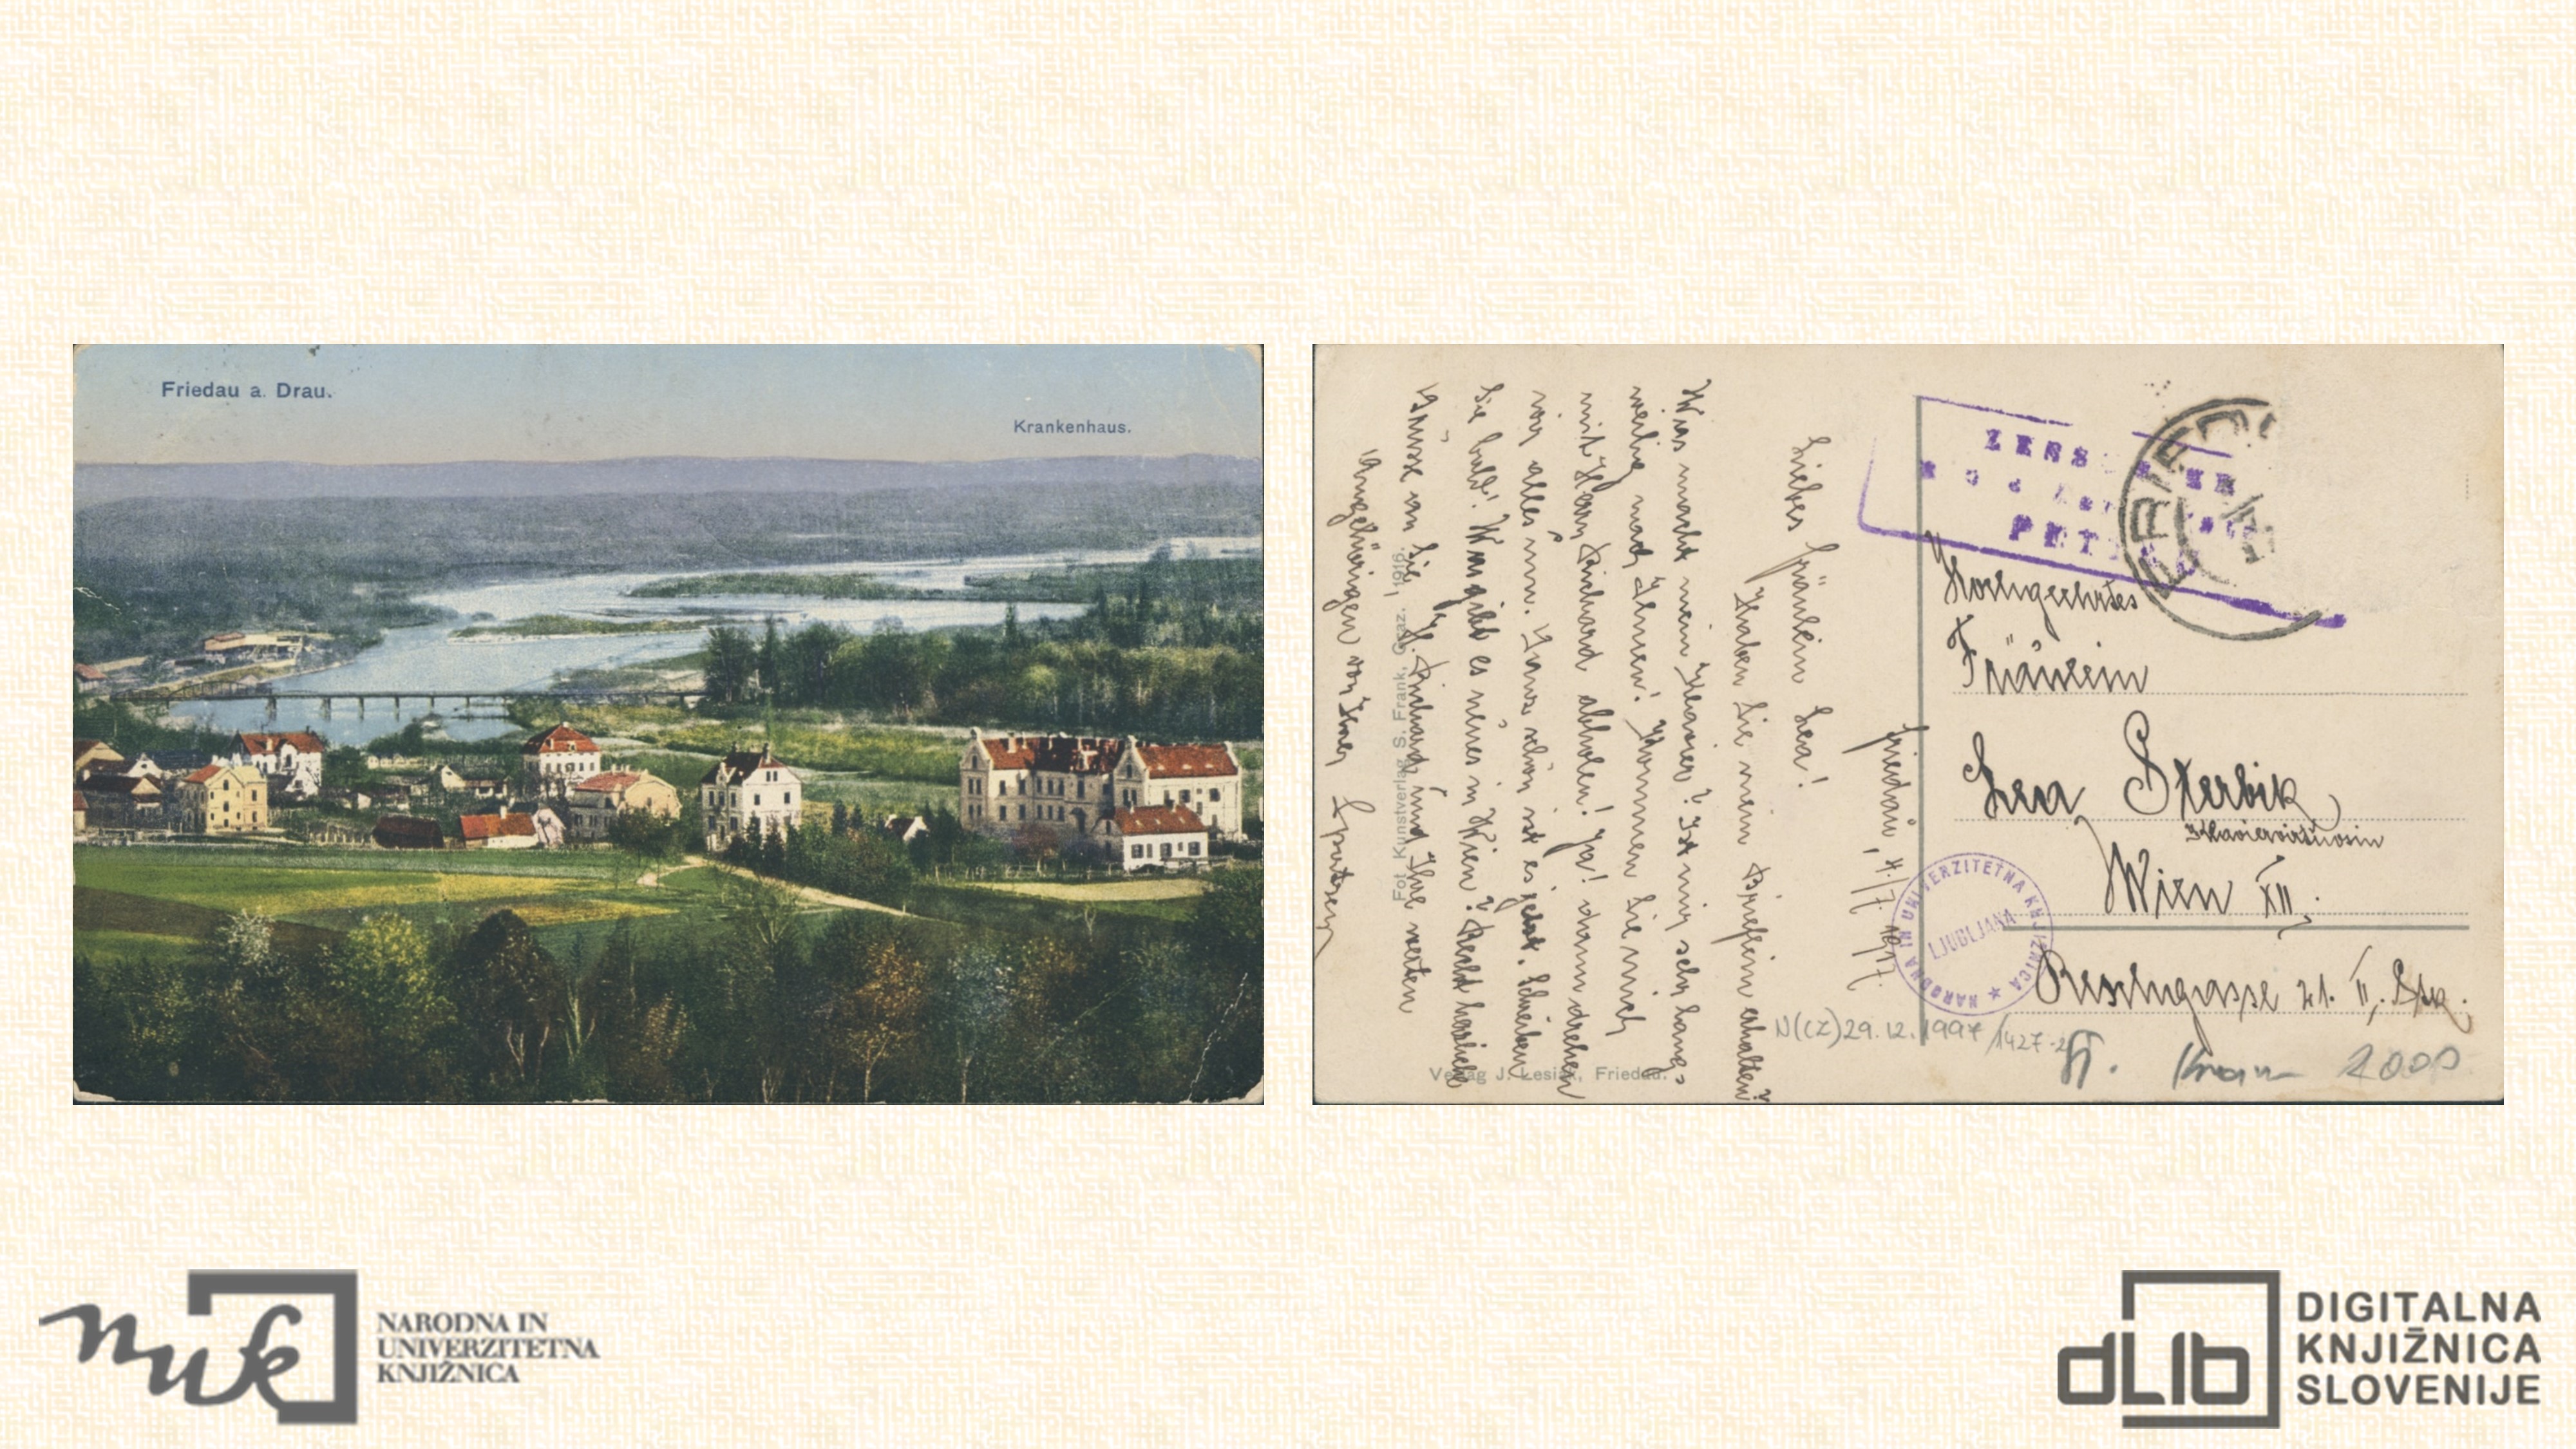 Friedau a. Drau.
Krankenhaus.
Friedau, 4./7. 1917.
Liebes Fräulein Lea!
Haben Sie mein Brieflein erhalten?
Was macht mein Klavier? Ist mir sehr lang-
weilig nach Ihnen! Kommen Sie mich
mit Herrn Richard abholen! Ja! dann drehen
wir alles um. Ganz schön ist es jetzt. Schreiben
Sie bald! Was gibt es neues in Wien? Recht herzliche
Grüsse an Sie, H. Richard und Ihre werten
Angehörigen von Ihrer
Fot. Kunstverlag S. Frank, Graz. 1916.
Verlag J. Lesiak, Friedau.
FRIED
PET
Hochgeehrtes
Fräulein
Lea Sterbik
Klaviervirtuosin
Wien XII,
21. II,
NARODNA IN UNIVERZITETNA KNJIŽNICA ★
LJUBLJANA
N(CZ)29.12.1997/1427-2
2000
nuk
NARODNA IN
UNIVERZITETNA
KNJIŽNICA
dLib
DIGITALNA
KNJIŽNICA
SLOVENIJE